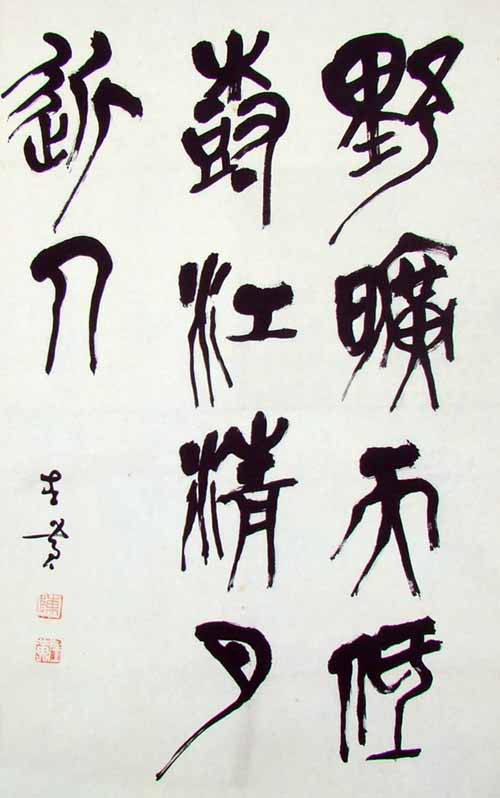 野曠天低
樹江清月
近人
陳